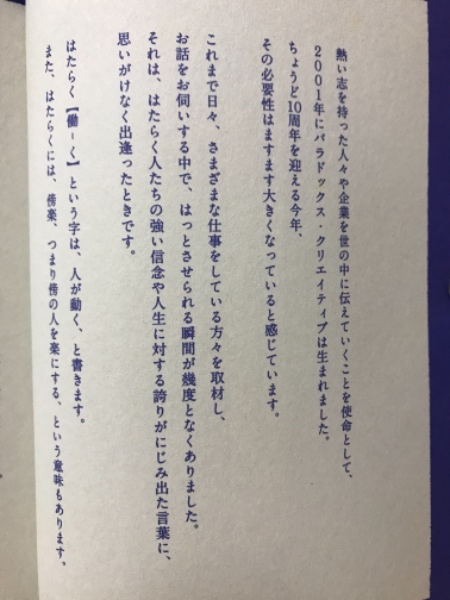 熱い志を持った人々や企業を世の中に伝えていくことを使命として、
2001年にパラドックス・クリエイティブは生まれました。
ちょうど10周年を迎える今年、
その必要性はますます大きくなっていると感じています。
これまで日々、さまざまな仕事をしている方々を取材し、
お話をお伺いする中で、はっとさせられる瞬間が幾度となくありました。
それは、はたらく人たちの強い信念や人生に対する誇りがにじみ出た言葉に、
思いがけなく出逢ったときです。
はたらく【働-く】という字は、人が動く、と書きます。
また、はたらくには、傍楽、つまり傍の人を楽にする、という意味もあります。